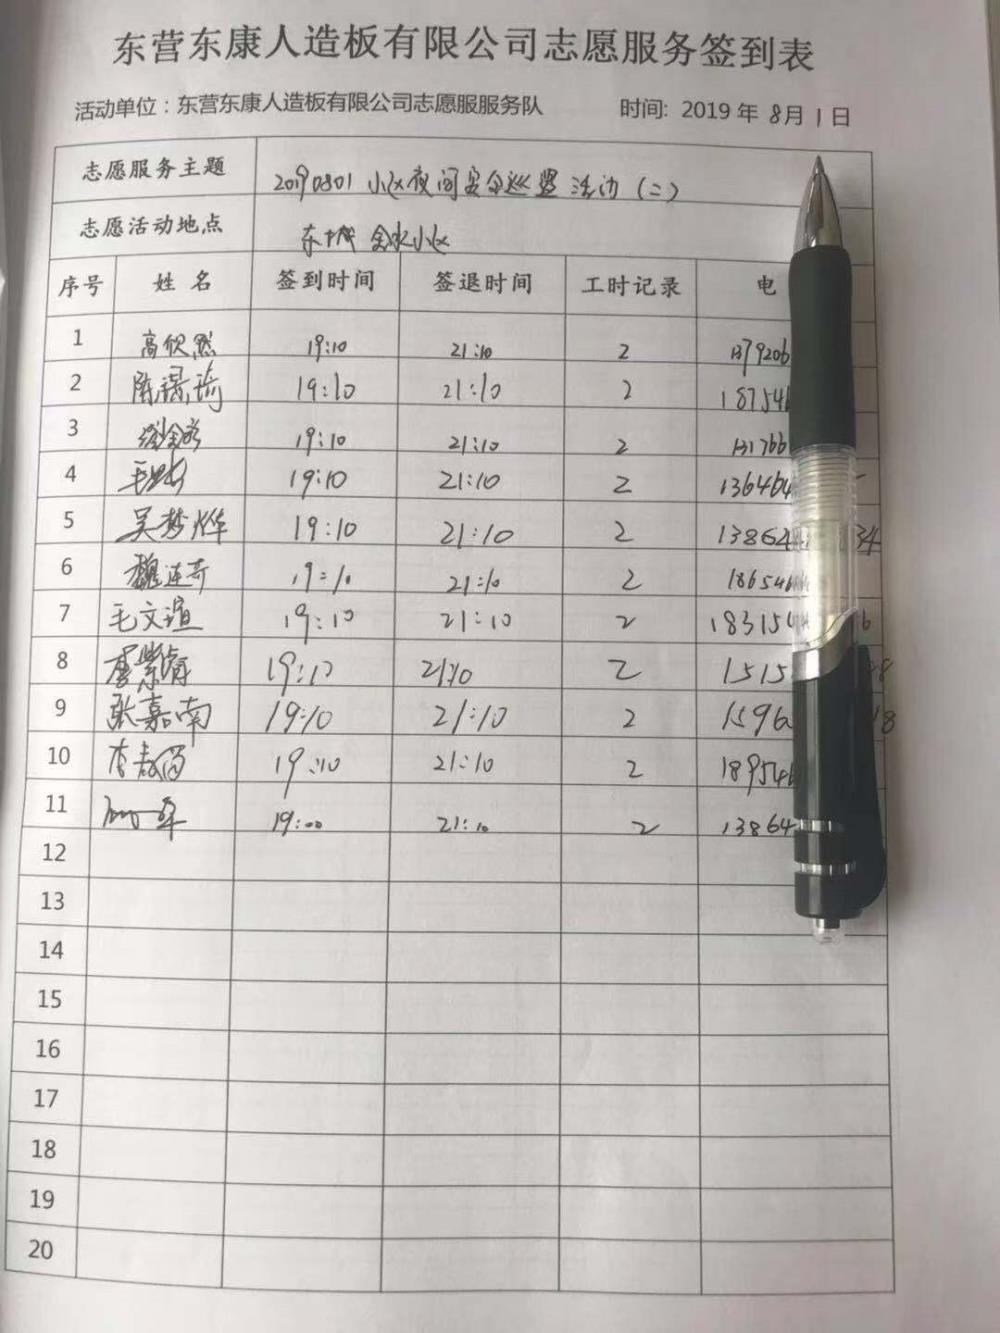 东营东康人造板有限公司志愿服务签到表
活动单位：东营东康人造板有限公司志愿服服务队 时间: 2019 年 8月 1日
志愿服务主题 20190801 小区夜间安全巡逻 活动 (二)
志愿活动地点 东城 小区
序号 姓 名 签到时间 签退时间 工时记录 电
1 高欣然 19:10 21:10 2 1379206
2 19:10 21:10 2 187546
3 19:10 21:10 2 131766
4 19:10 21:10 2 136464
5 吴梦烨 19:10 21:10 2 13864 34
6 魏连奇 19:10 21:10 2 186546
7 毛文谊 19:10 21:10 2 183154 6
8 19:10 21:10 2 1515 8
9 张嘉南 19:10 21:10 2 1596 18
10 19:10 21:10 2 189546
11 19:00 21:10 2 13864
12
13
14
15
16
17
18
19
20